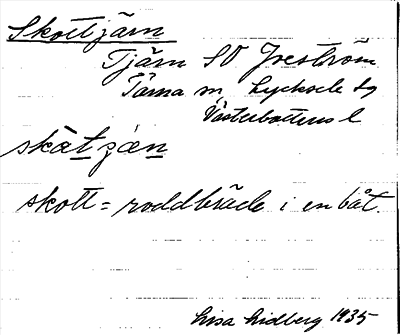 Skottjärn
Tjärn SO Joeström
Tärna sn, Lycksele lg
Västerbottens l
skåtjæn
skott = roddbräde i en båt.
Lisa Lidberg 1935